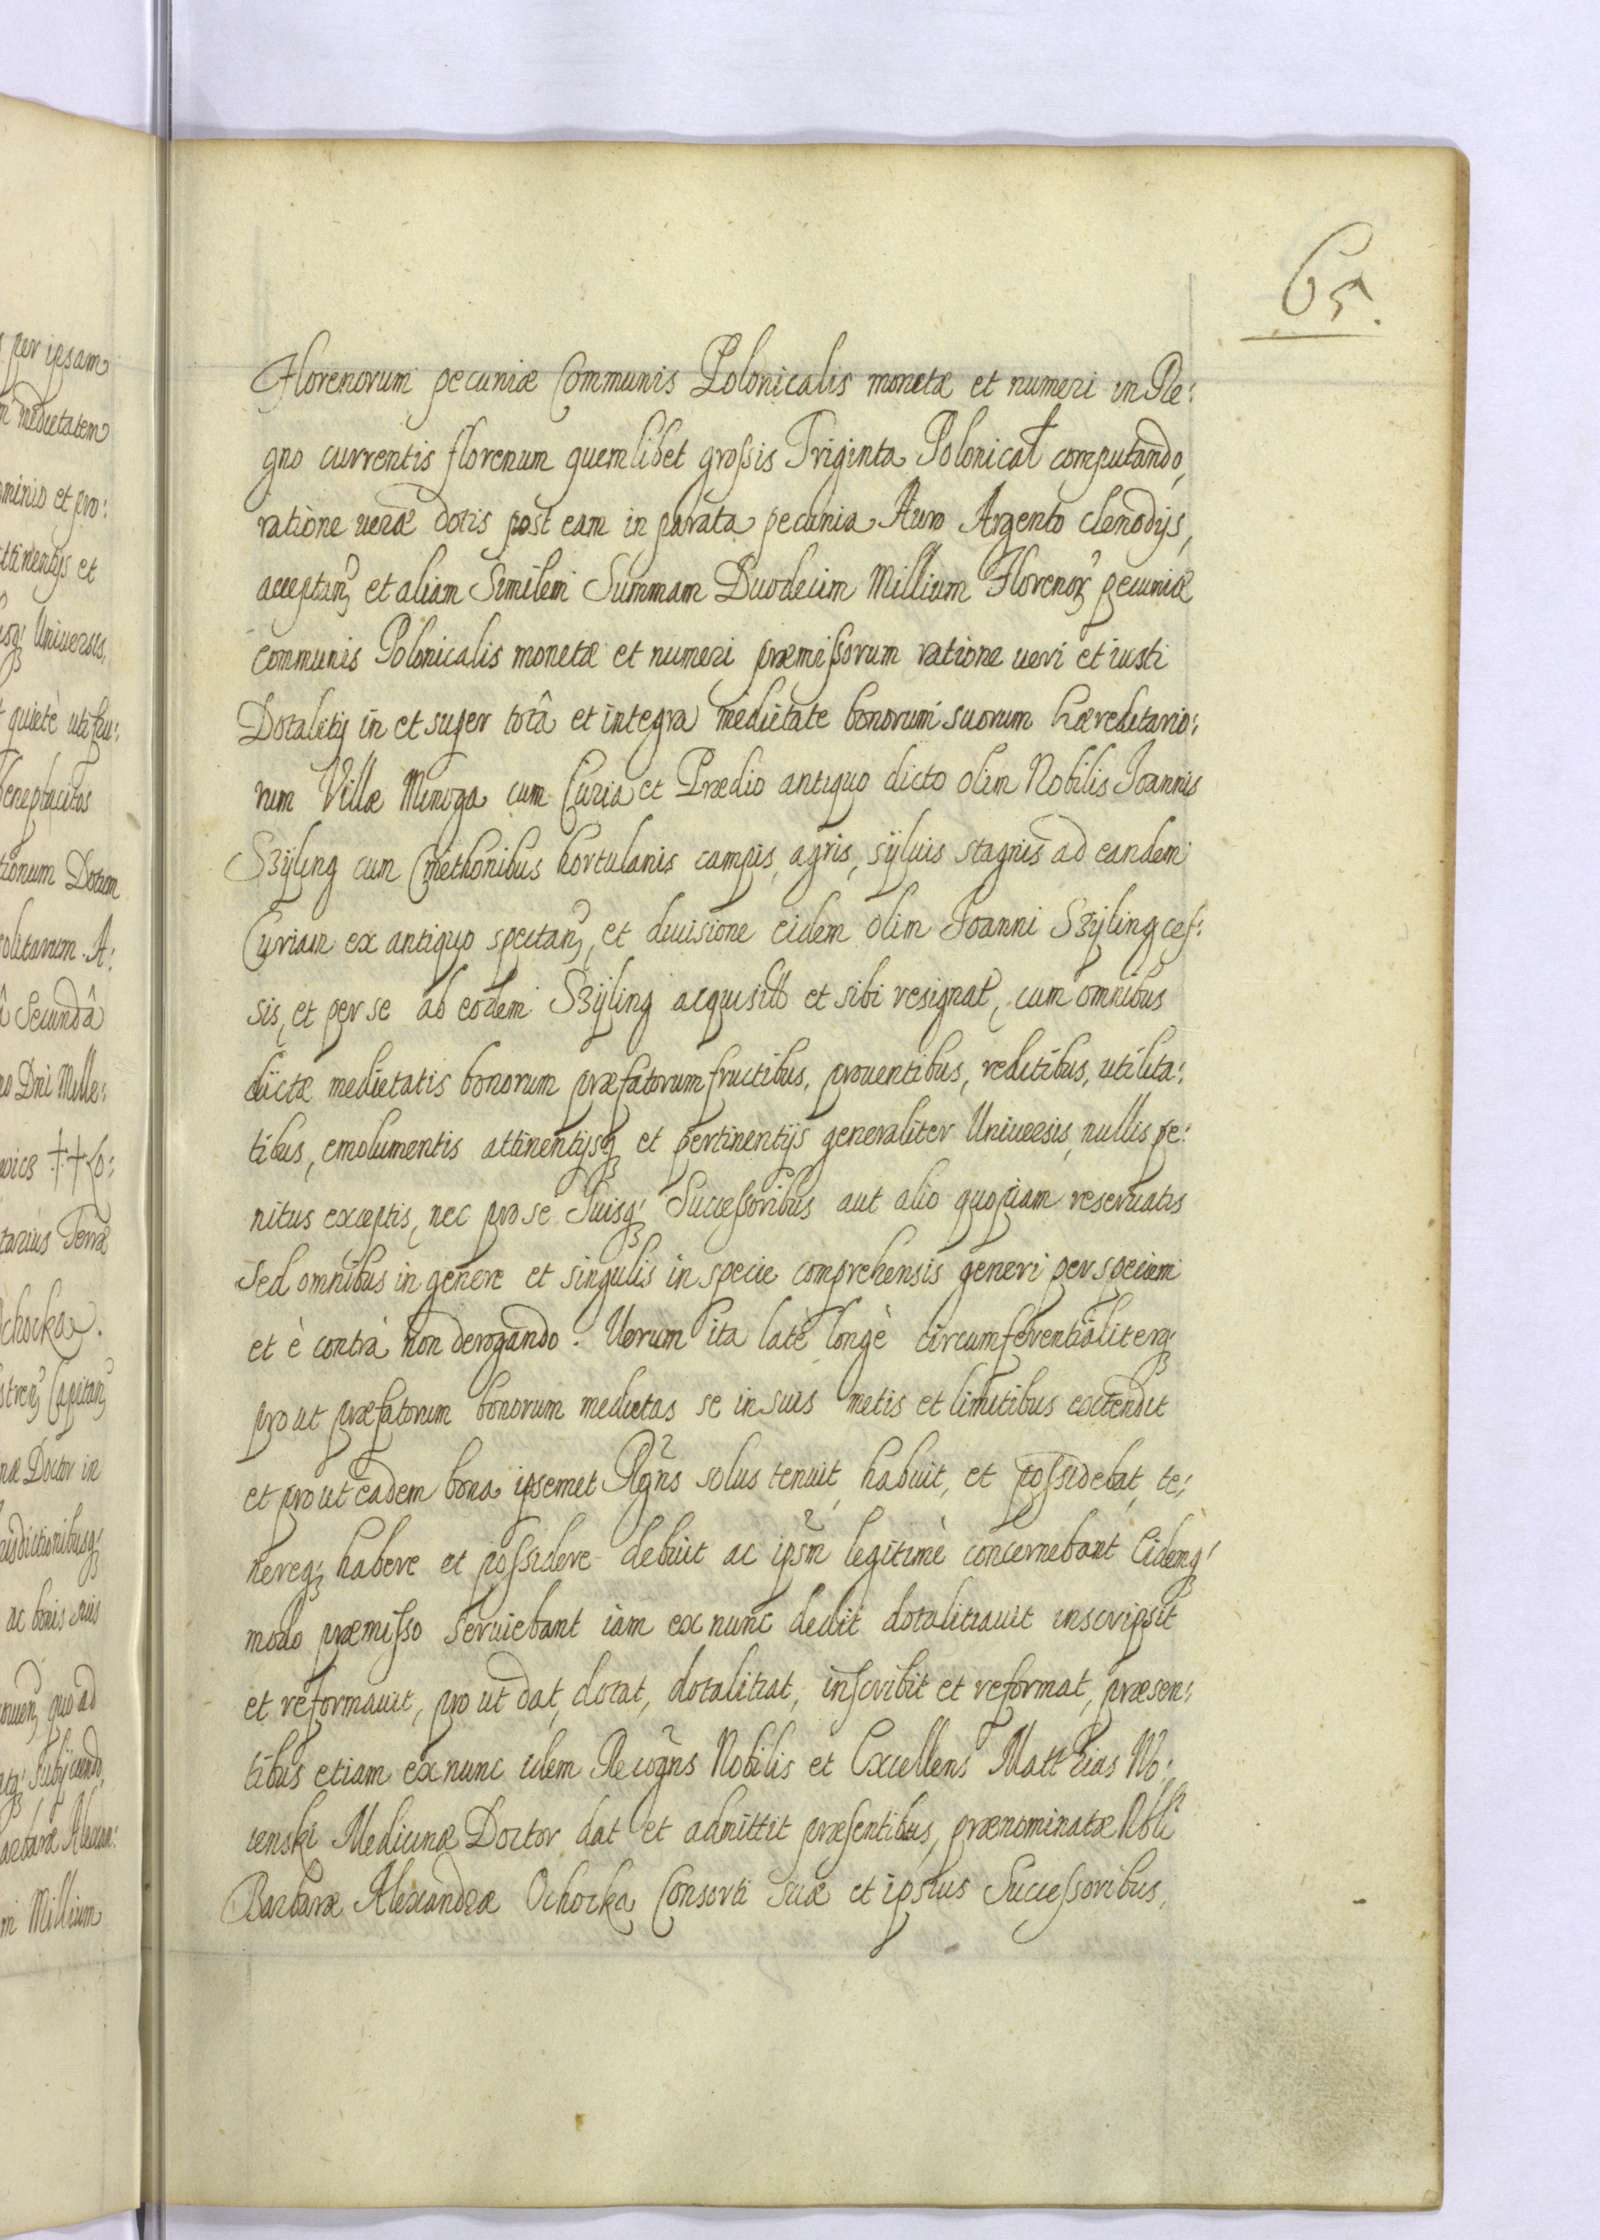 65.
Florenorum pecuniæ Communis Polonicalis monetæ et numeri in Re:
gno currentis florenum quemlibet grossis Triginta Polonicał computando,
ratione veræ dotis post eam in parata pecunia Auro Argento clenodijs,
acceptanꝫ et aliam Similem Summam Duodecim Millium Florenorꝫ pecuniæ
communis Polonicalis monetæ et numeri præmissorum ratione veri et iusti
Dotalitij in et super totâ et integra medietate bonorum suorum hæreditario:
rum Villæ Minoga cum Curia et Prædio antiquo dicto olim Nobilis Joannis
Szijling cum Cmethonibus hortulanis campis, agris, sÿluis stagnis ad eandem
Curiam ex antiquo spectanꝫ, et diuisione eidem olim Joanni Szijling ces:
sis, et per se ab eodem Szijling acquisit et sibi resignat, cum omnibus
dictæ medietatis bonorum præfatorum fructibus, prouentibus, reditibus, utilita:
tibus, emolumentis attinentijsqꝫ et pertinentijs generaliter Uniuersis, nullis pe:
nitus exceptis, nec pro se Suisqꝫ Successoribus aut alio quopiam reseruatis
Sed omnibus in genere et singulis in specie comprehensis generi per speciem
et è contrà non derogando. Uerum ita latè longè circumferentialiterqꝫ
pro ut præfatorum bonorum medietas se in suis metis et limitibus extendit
et pro ut eadem bona ipsemet Rgñs solus tenuit, habuit, et possidebat, te:
nereqꝫ habere et possidere debuit ac ipsm̃ legitimè concernebant Eidemqꝫ
modo præmisso seruiebant iam ex nunc dedit dotalitiauit inscripsit
et reformauit, pro ut dat, dotat, dotalitiat, inscribit et reformat, præsen:
tibus etiam ex nunc idem Recogñs Nobilis et Excellens Matthias Wo:
ienski Medicinæ Doctor dat et admittit præsentibus, prænominatæ Nbli
Barbaræ Alexandræ Ochocka Consorti suæ et ipsius Successoribus,